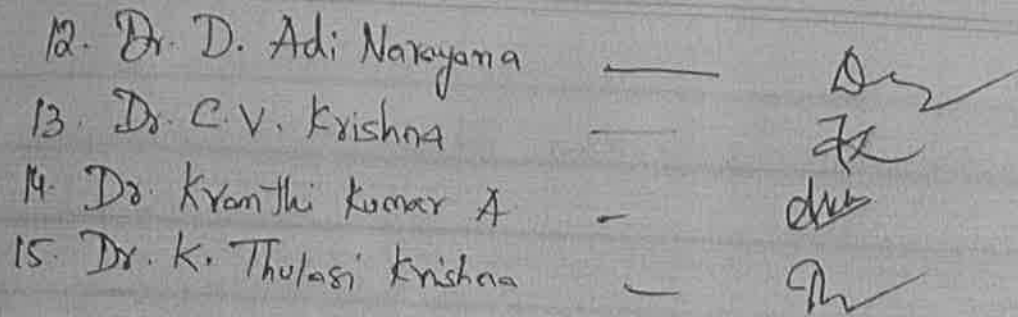 12. Dr. D. Adi Narayana —
13. Dr. C.V. Krishna —
14. Dr. Kranthi Kumar A -
15. Dr. K. Thulasi Krishna —